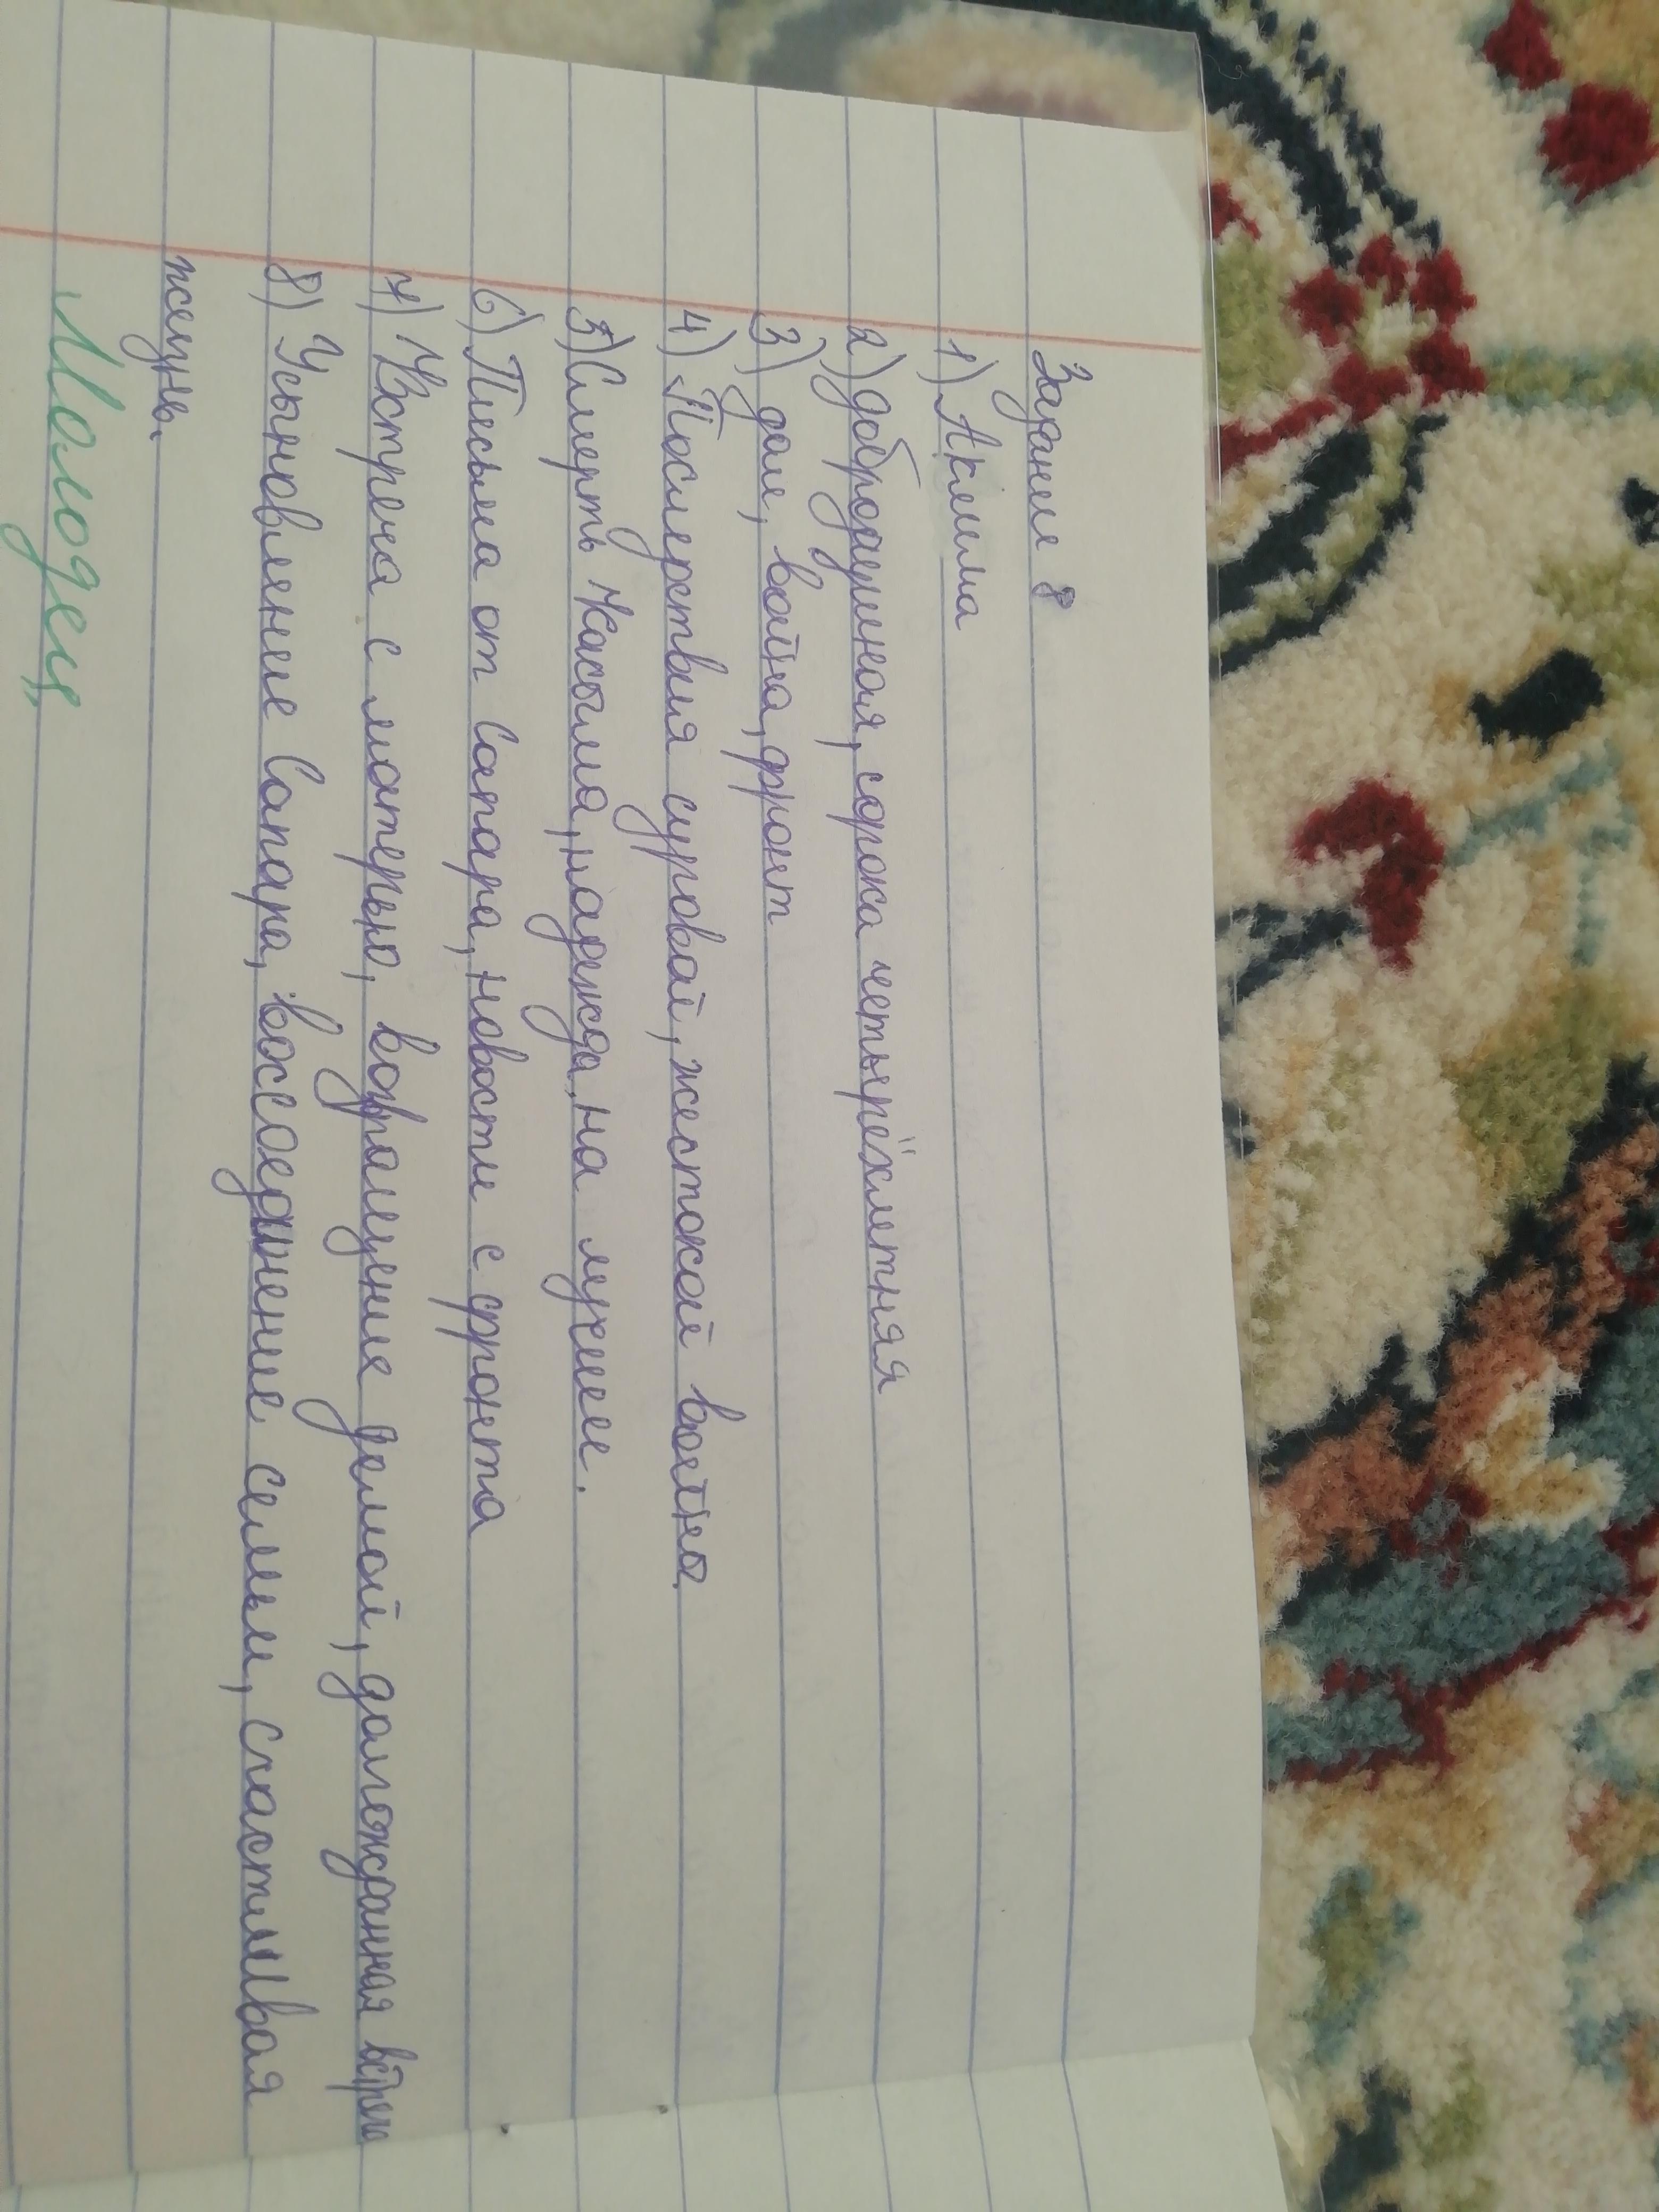 Задание 8
1) Аклима
2) добродушная, сорока четырёхлетняя
3) дом, война, фронт
4) Последствия суровой, жестокой войны
5) Смерть Касыма, надежда на лучшее.
6) Письма от Сапара, новости с фронта
7) Встреча с матерью, возвращение домой, долгожданная встреча
8) Усыновление Сапара, воссоеднение семьи, счастливая
жизнь.
Молодец